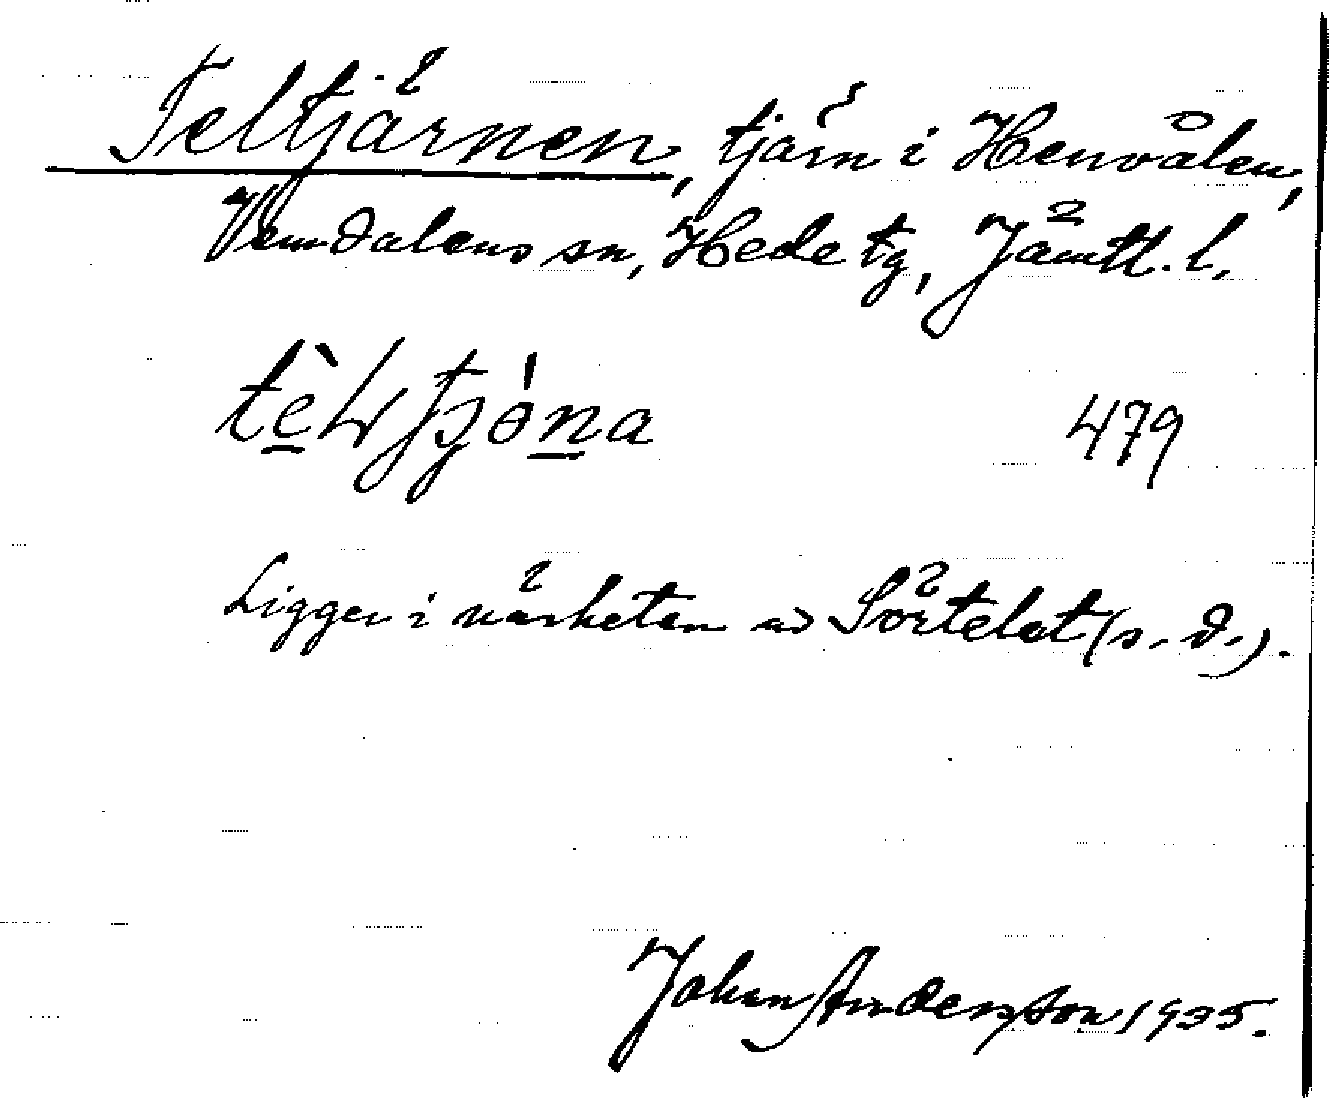 Teltjärnen, tjärn i Henvålen,
Vemdalens sn, Hede tg, Jämtl. l.
479
Ligger i närheten av Sörtelet (s. d.).
Johan Anderzson 1935.